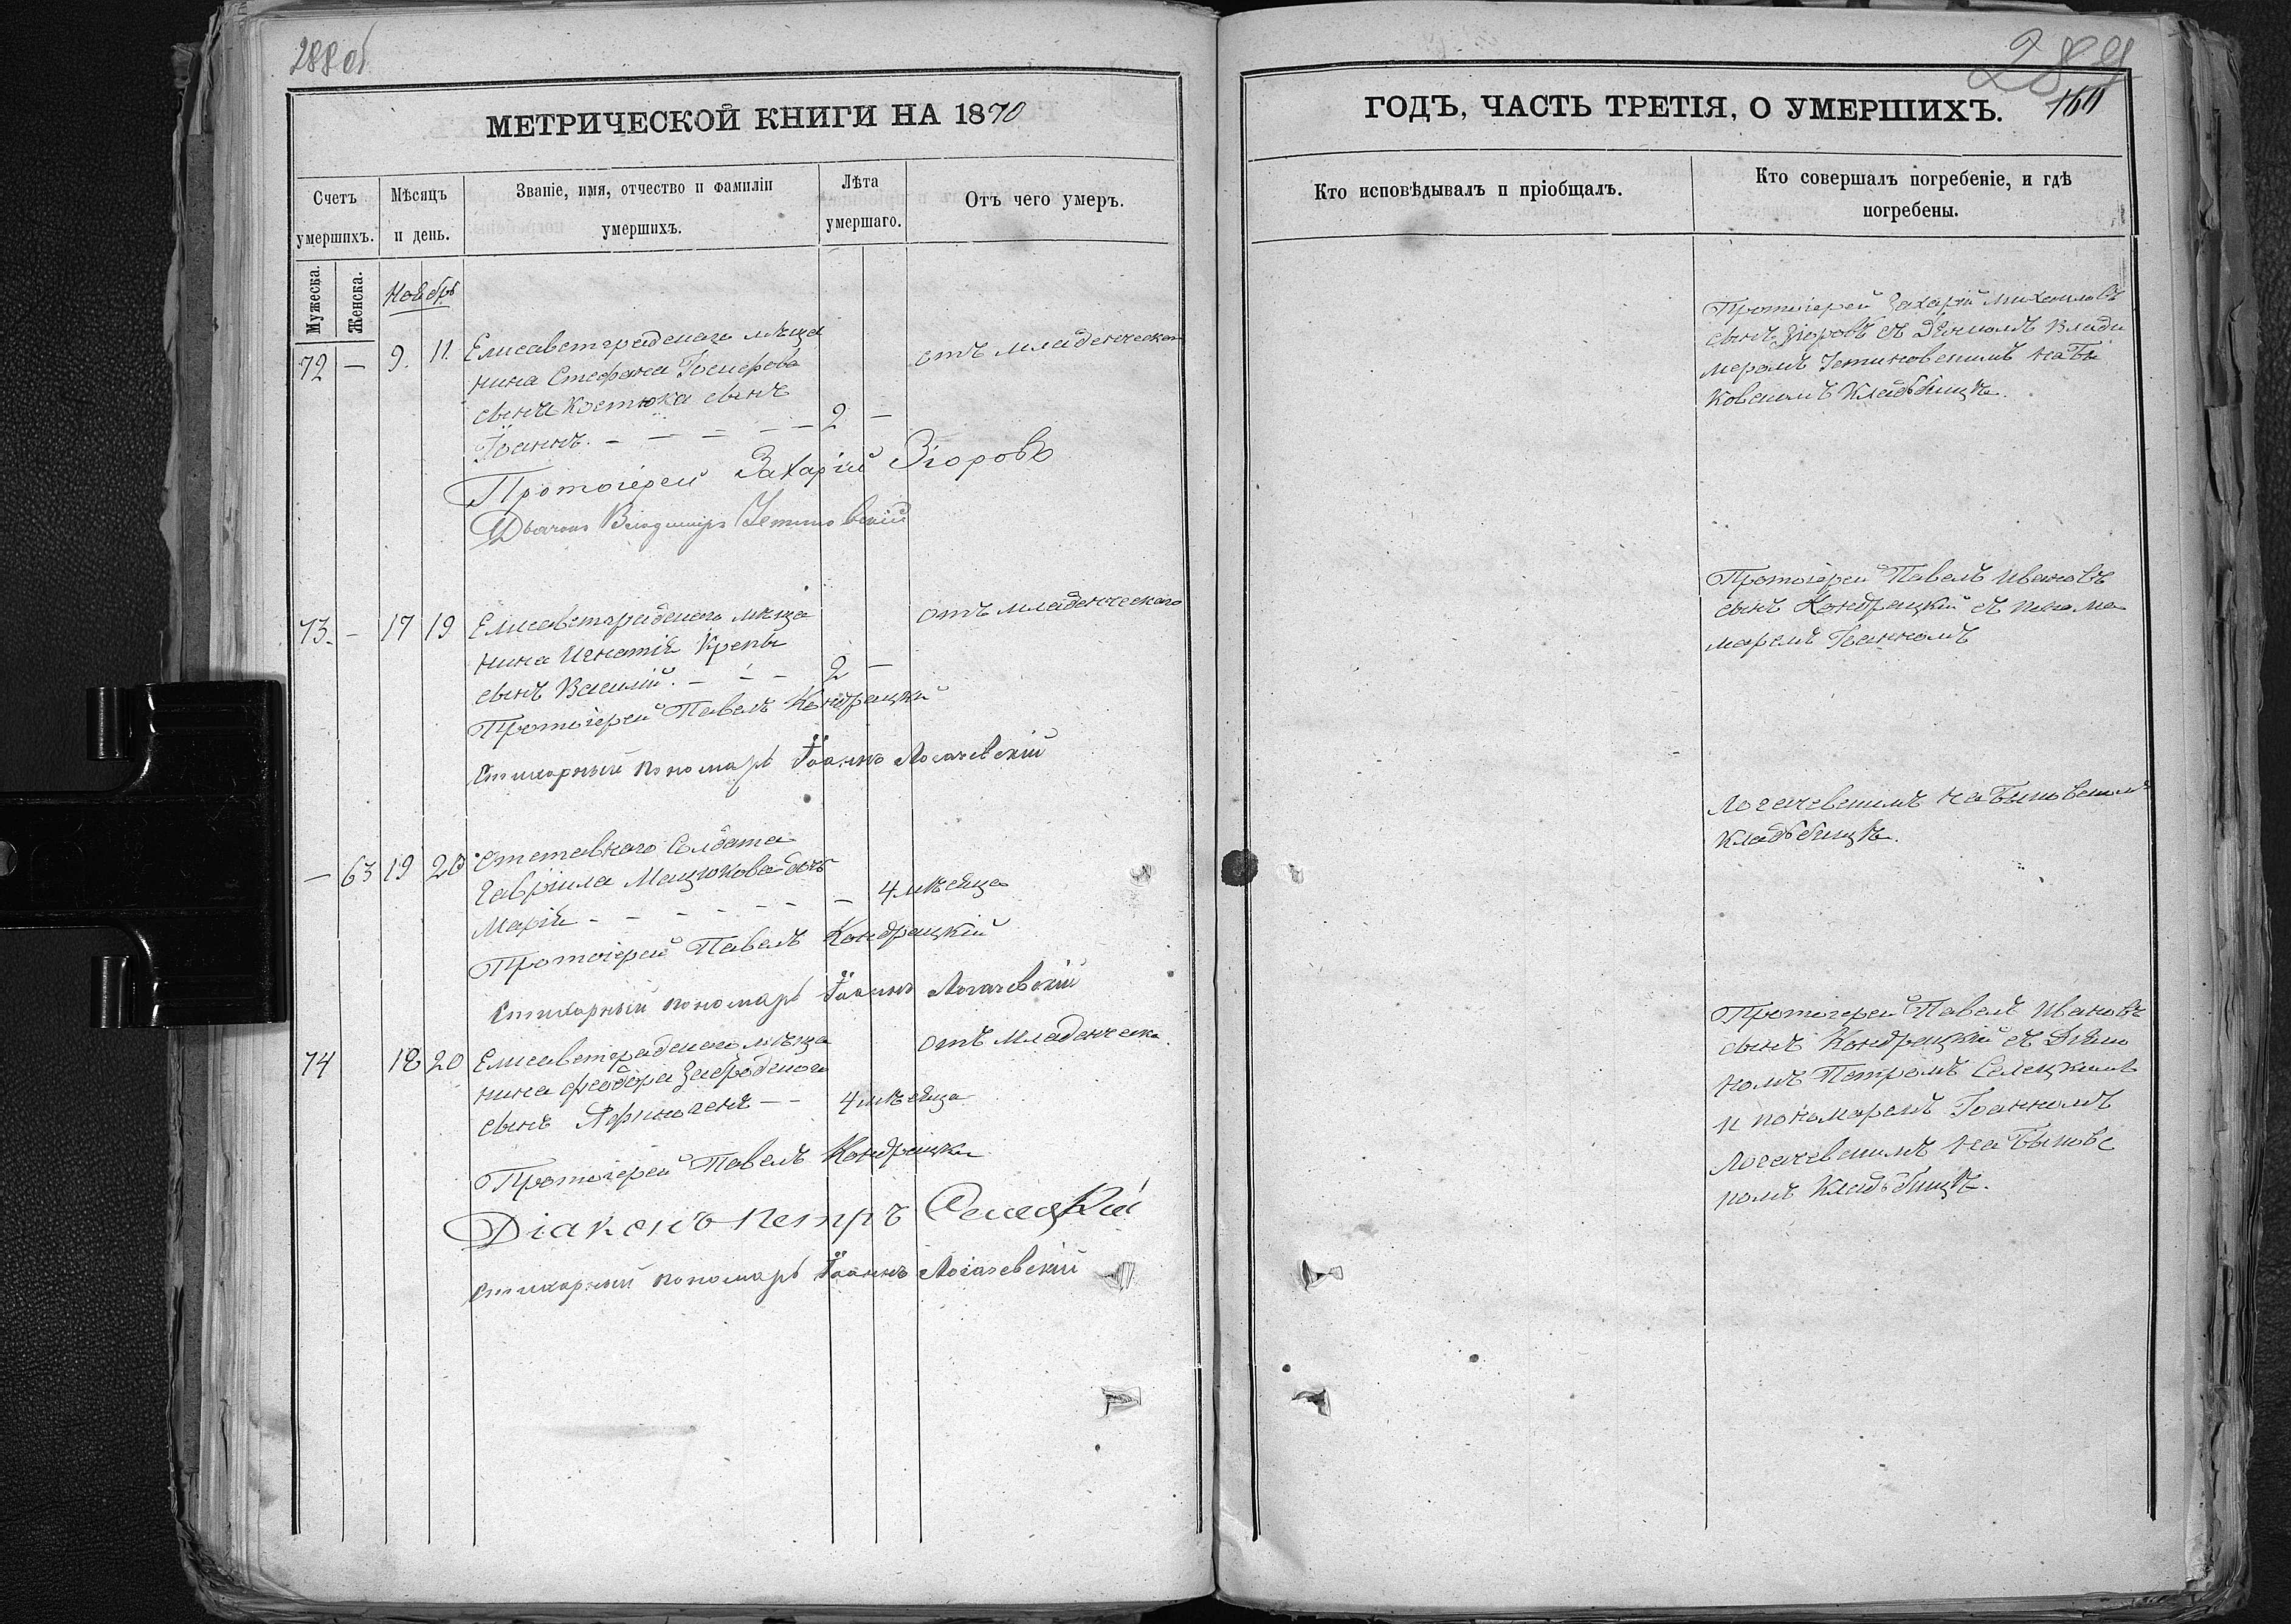 288 об
МЕТРИЧЕСКОЙ КНИГИ НА 1870
Счетъ умершихъ.
Мѣсяцъ и день.
Званіе, имя, отчество и фамиліи умершихъ.
Лѣта умершаго.
Отъ чего умеръ.
Мужеска.
Женска.
Ноябрь
72 — 9. 11. Елисаветградскаго мѣща отъ младенческаго
нина Стефана Іосифова
сына Костюка сынъ
Іоаннъ. — — — — — 2 —
Протоіерей Захарій Згоровъ
Дьяконъ Владиміръ Устиновскій
73. — 17 19 Елисаветградскаго мѣща отъ младенческаго
нина Игнатія Крепы
сынъ Василій. — — — 2 —
Протоіерей Павелъ Кондрацкій
Стихарный пономарь Іоаннъ Логачевскій
— 63 19 20 Отставнаго Солдата
Гавріила Мацюкова дочь
Марія — — — — — — — 4 мѣсяца
Протоіерей Павелъ Кондрацкій
Стихарный пономарь Іоаннъ Логачевскій
74 18 20 Елисаветградскаго мѣща отъ младенческа.
нина Феодора Забродскаго
сынъ Афиногенъ — — 4 мѣсяца
Протоіерей Павелъ Кондрацкій
Діаконъ Петръ Селецкій
Стихарный пономарь Іоаннъ Логачевскій
289
ГОДЪ, ЧАСТЬ ТРЕТІЯ, О УМЕРШИХЪ.
160
Кто исповѣдывалъ и пріобщалъ.
Кто совершалъ погребеніе, и гдѣ погребены.
Протоіерей Захарій Михаиловъ
сынъ Згоровъ съ Діякономъ Влади
меромъ Устиновскимъ на Бы
ковскомъ Кладбищѣ.
Протоіерей Павелъ Ивановъ
сынъ Кондрацкій съ поно ма
маремъ Іоанномъ
Логачевскимъ на Быковскомъ
Кладбищѣ.
Протоіерей Павелъ Ивановъ
сынъ Кондрацкій съ Діако
номъ Петромъ Селецкимъ
и пономаремъ Іоанномъ
Логачевскимъ на Быковс
комъ Кладбищѣ.